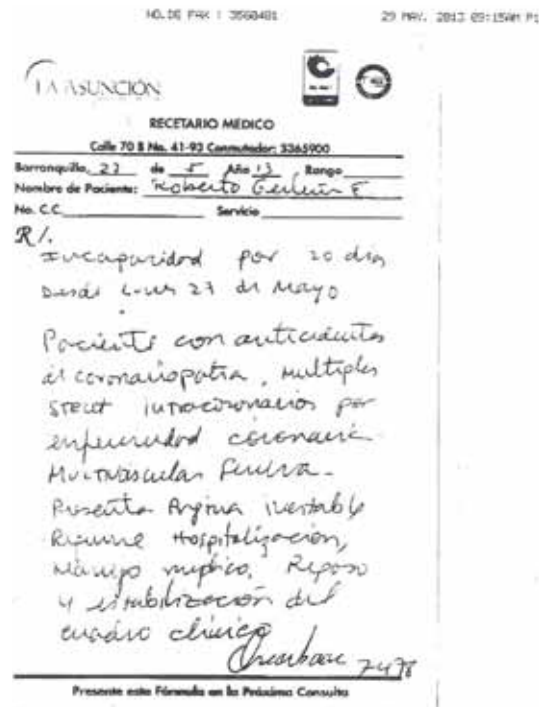 NO.DE FAX : 3560481 29 MAY. 2013 09:15AM P1
LA ASUNCIÓN
RECETARIO MEDICO
Calle 70 B No. 41-93 Conmutador: 3365900
Barranquilla, 27 de 5 Año 13 Rango
Nombre de Paciente: Roberto Gerlein E
No. C.C. Servicio
R/.
Incapacidad por 20 dias
Desde Lunes 27 de Mayo
Paciente con antecedentes
de coronariopatia, multiples
stent intracoronarios por
enfermedad coronaria
Multivascular severa.
Presenta Angina inestable
Requiere Hospitalización,
Manejo medico, Reposo
y estabilización del
cuadro clinico
7478
Presente esta Fórmula en la Próxima Consulta